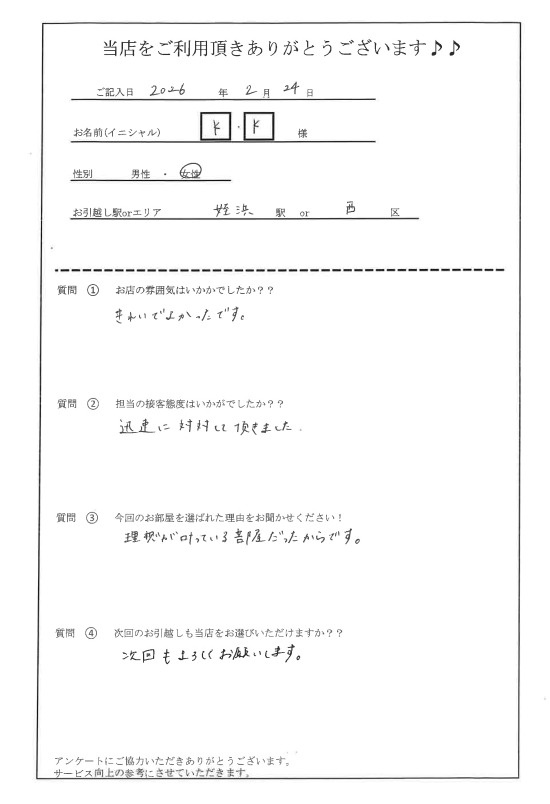 当店をご利用頂きありがとうございます♪♪
ご記入日 2026 年 2 月 24 日
お名前(イニシャル) K ・ K 様
性別 男性 ・ 女性
お引越し駅orエリア 姪浜 駅 or 西 区
質問 ① お店の雰囲気はいかかでしたか？？
きれいでよかったです。
質問 ② 担当の接客態度はいかがでしたか？？
迅速に対対して頂きました.
質問 ③ 今回のお部屋を選ばれた理由をお聞かせください！
理想が叶っている部屋だったからです。
質問 ④ 次回のお引越しも当店をお選びいただけますか？？
次回もよろしくお願いします。
アンケートにご協力いただきありがとうございます。
サービス向上の参考にさせていただきます。